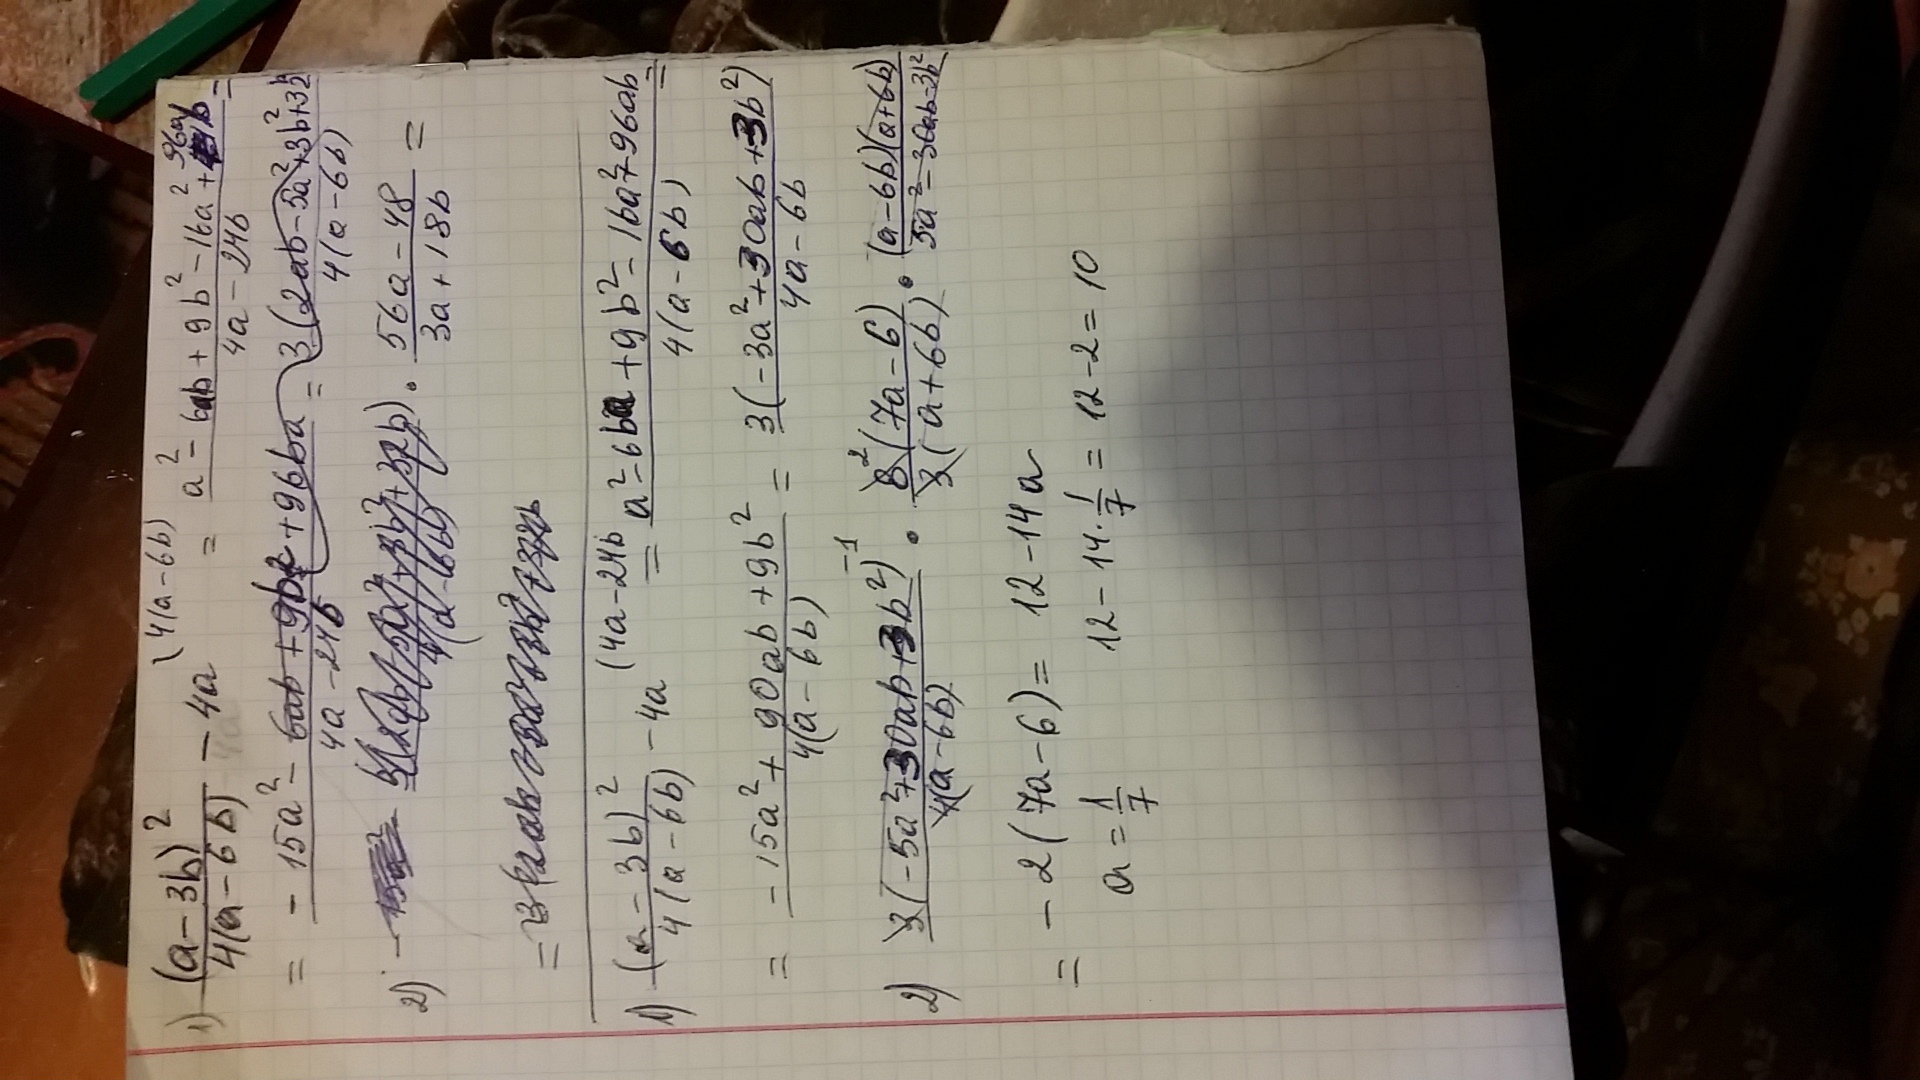 1) (a-3b)²/4(a-6b) - 4a (4(a-6b) = a²-6ab+9b²-16a²+96ab/4a-24b =
= -15a²-6ab+9b²+96ba/4a-24b = 3(2ab-5a²+3b²+32b/4(a-6b)
2) · 56a-48/3a+18b =
1) (a-3b)²/4(a-6b) - 4a (4a-24b = a²-6ba+9b²-16a²+96ab/4(a-6b) =
= -15a²+90ab+9b²/4(a-6b) = 3(-3a²+30ab+3b²)/4a-6b
2) 3(-5a²+30ab+3b²)⁻¹/4(a-6b) · 8²(7a-6)/3(a+6b) · (a-6b)(a+6b)/5a²-30ab-3b²
= -2(7a-6) = 12-14a
a = 1/7 12-14·1/7 = 12-2 = 10